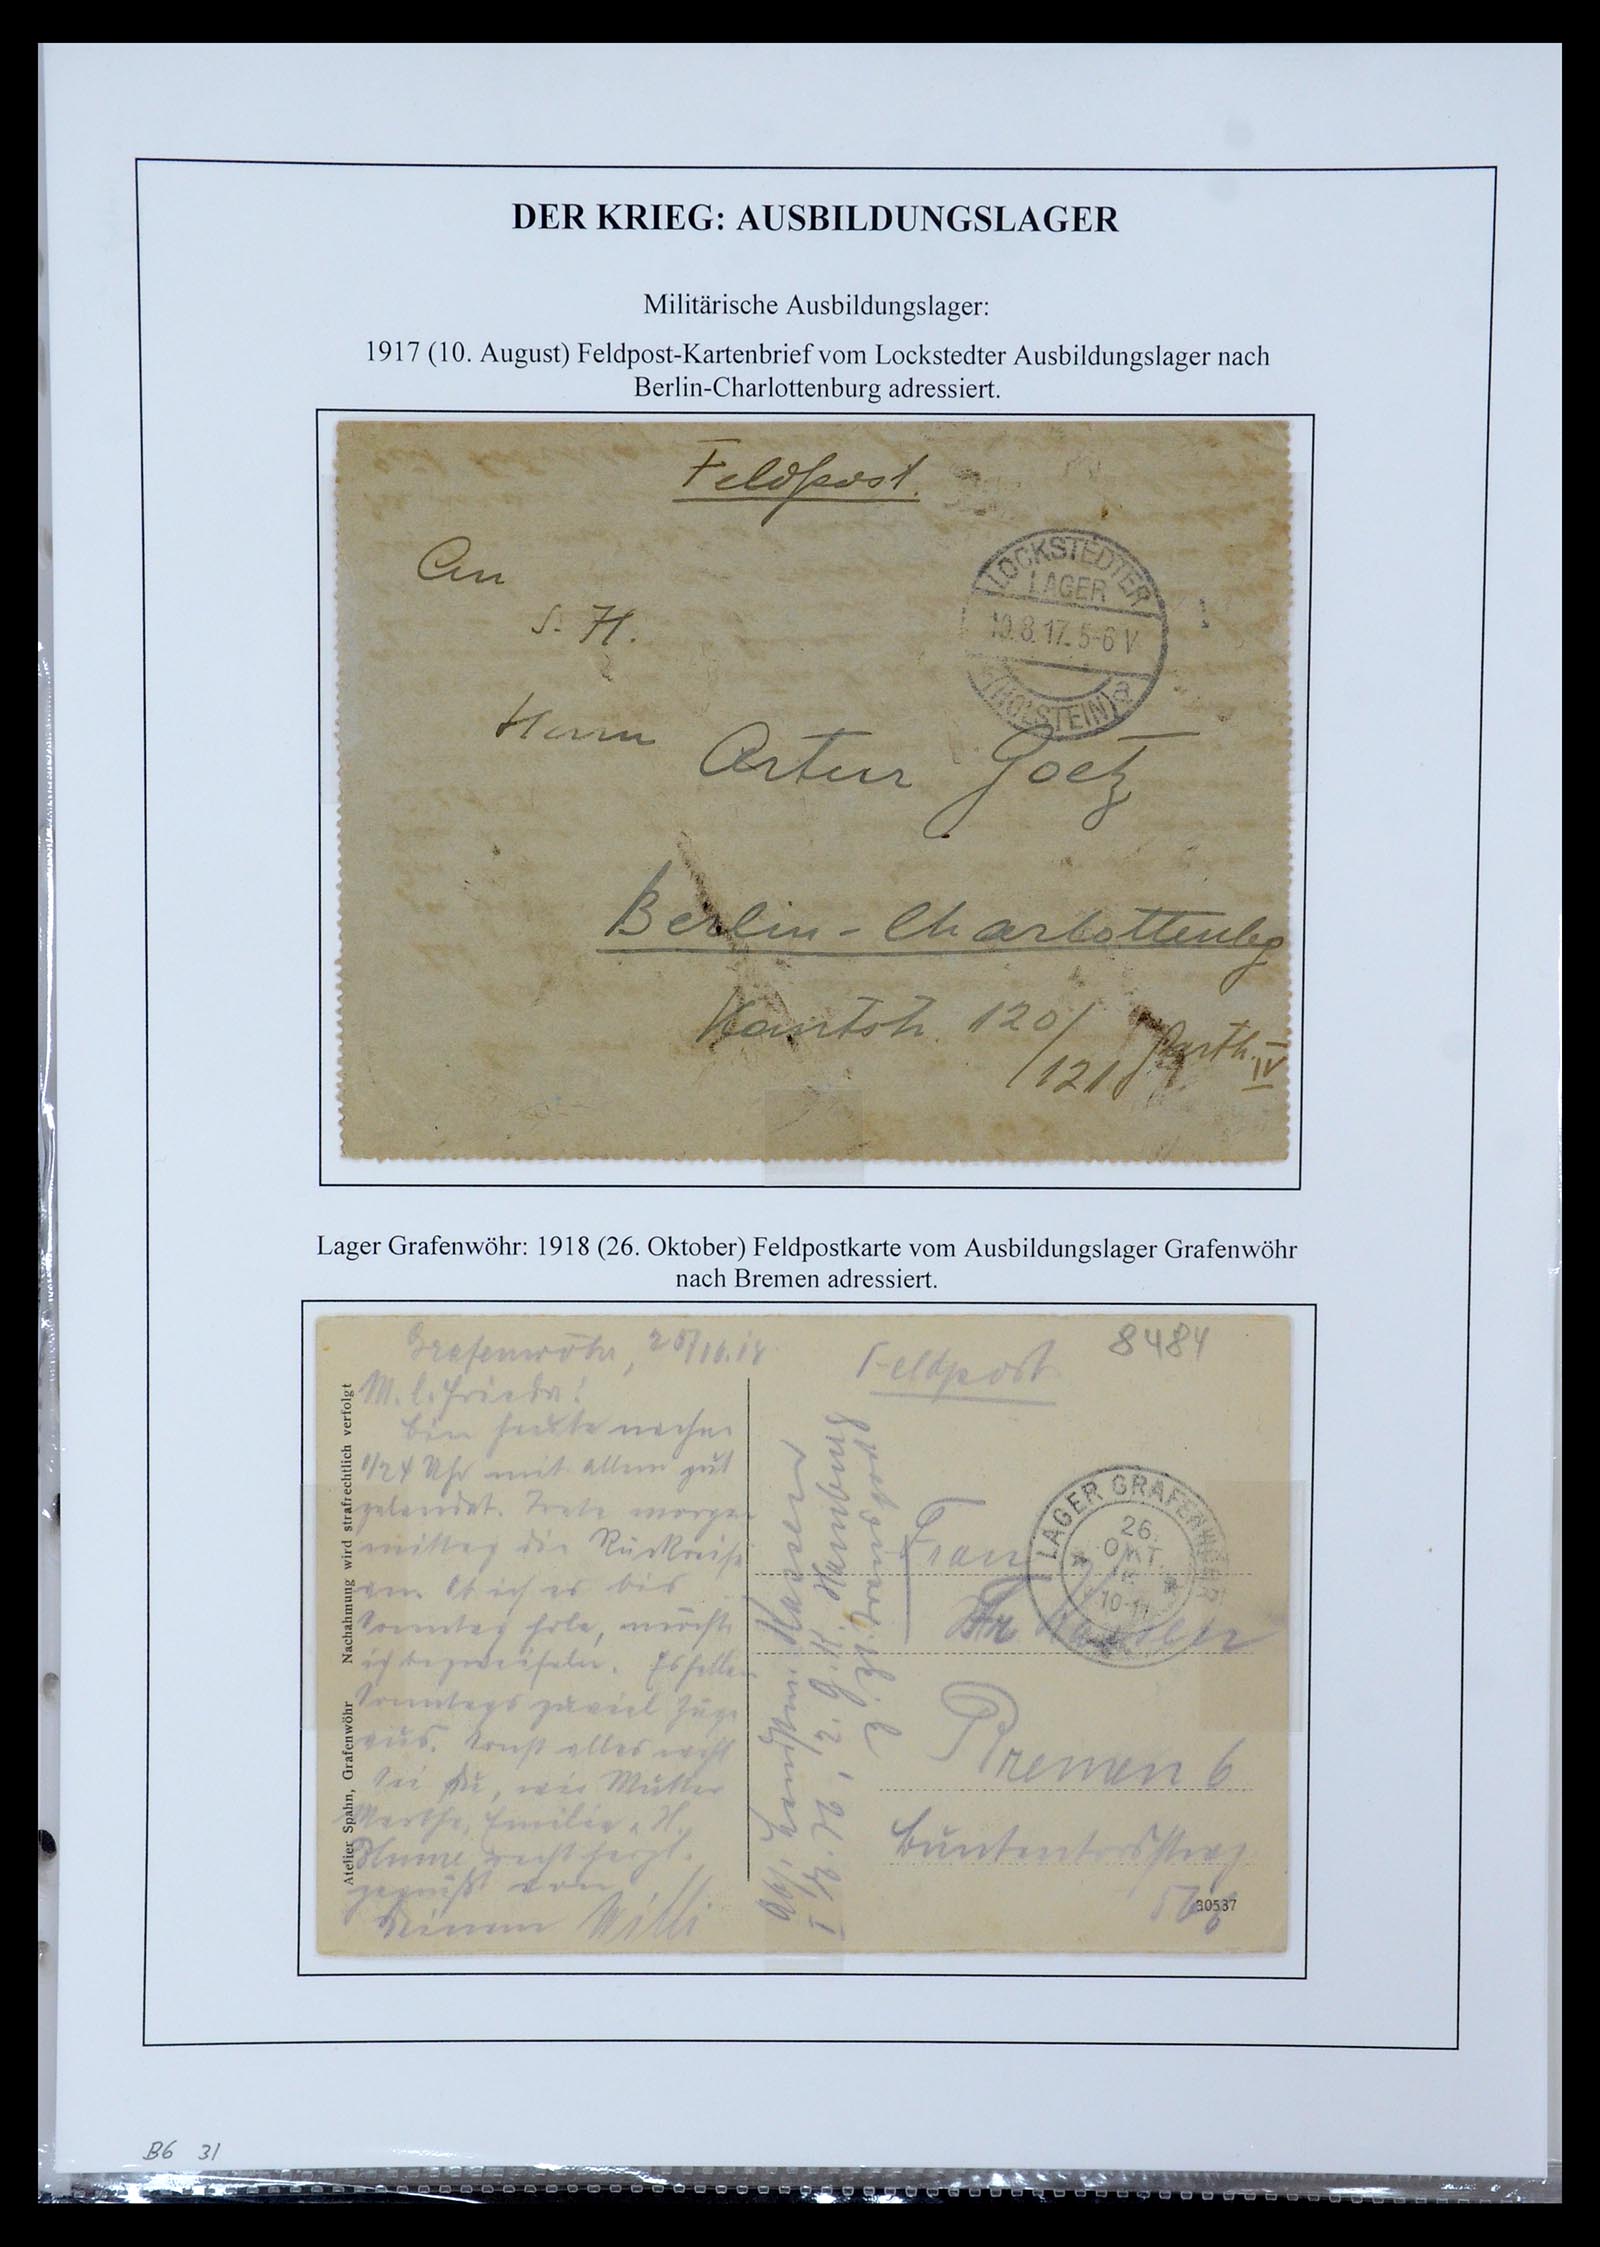 DER KRIEG: AUSBILDUNGSLAGER
Militärische Ausbildungslager:
1917 (10. August) Feldpost-Kartenbrief vom Lockstedter Ausbildungslager nach
Berlin-Charlottenburg adressiert.
Feldpost.
An
S. H.
Herrn Artur Goetz
Berlin-Charlottenbg
Kantstr. 120/
/121
IV
LOCKSTEDTER
LAGER
10.8.17. 5-6 V
(HOLSTEIN) a
Lager Grafenwöhr: 1918 (26. Oktober) Feldpostkarte vom Ausbildungslager Grafenwöhr
nach Bremen adressiert.
Grafenwöhr,
M. l. Frieda!
bin heute nachm
1/24 Uhr mit allem gut
gelandet. Trete morgen
mittag die Rückreise
an. Ob ich es bis
Sonntag hole, möchte
ich bezweifeln. Es fallen
Sonntags zuviel Züge
aus. Sonst alles wohl
Sei Du, wie Mutter
Marthe, Emilie, H.
Blume recht herzl.
gegrüßt von
Deinem Willi
Atelier Spahn, Grafenwöhr Nachahmung wird strafrechtlich verfolgt
Feldpost
8484
LAGER GRAFENWÖHR
26.
OKT.
10-11
Frau
Bremen 6
Buntentorsteinweg
30537
B6 31